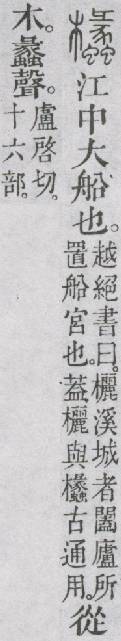 欚江中大船也。越絕書曰。欐溪城者闔廬所
置船宮也。葢欐與欚古通用。從
木。蠡聲。盧啓切。
十六部。